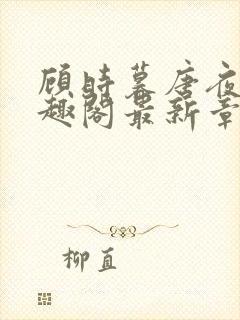 顾时暮唐夜
趣阁最新章
柳直